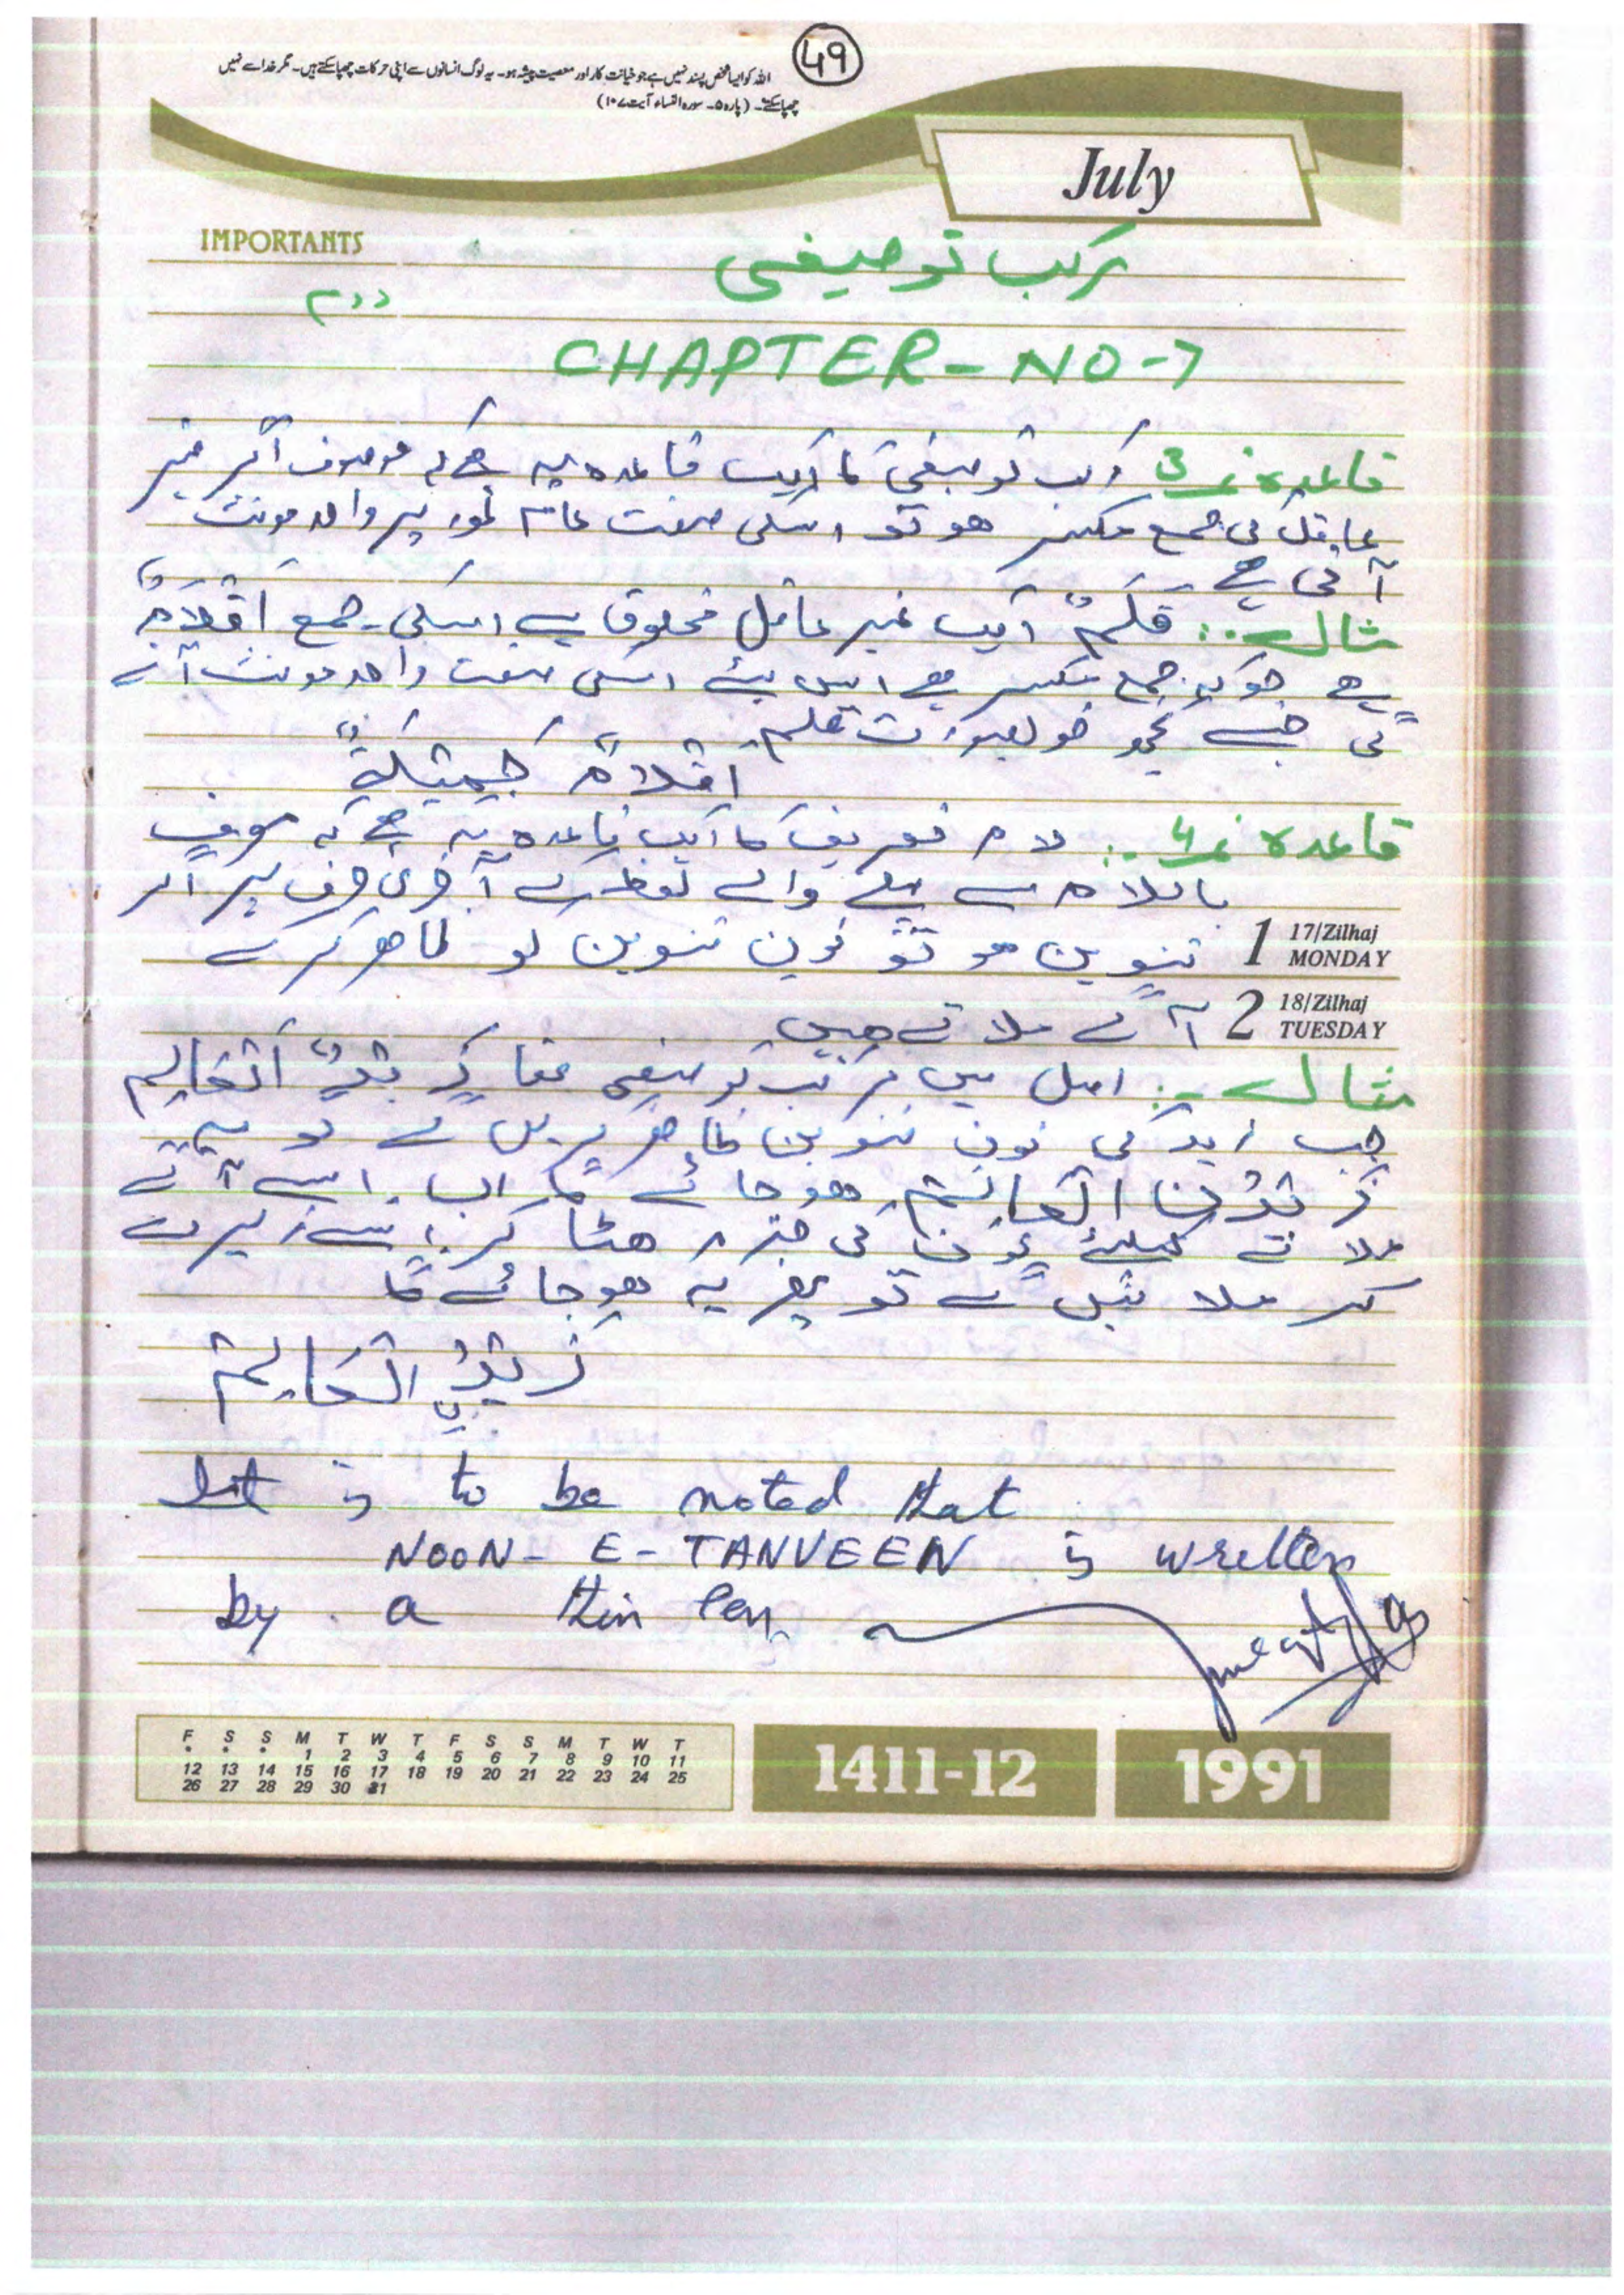 49
اللہ کو ایسا شخص پسند نہیں ہے جو خیانت کار اور معصیت پیشہ ہو۔ یہ لوگ انسانوں سے اپنی حرکات چھپا سکتے ہیں۔ مگر خدا سے نہیں
چھپا سکتے۔ (پارہ ۵۔ سورہ النساء آیت ۱۰۷)
July
IMPORTANTS
مرکب توصیفی
دوم
CHAPTER-NO-7
قاعدہ نمبر 3 مرکب توصیفی کا ایک قاعدہ یہ ہے کہ موصوف اگر غیر
عاقل کی جمع مکسر ھو تو اسکی صفت عام طور پر واحد مونث
آتی ہے
مثال :. قَلَمٌ ایک غیر عاقل مخلوق ہے اسکی جمع اَقْلَامٌ
ہے جو کہ جمع مکسر ہے اس لئے اسکی صفت واحد مونث آئے
گی جیسے کچھ خوبصورت قلم
اَقْلَامٌ جَمِيْلَةٌ
قاعدہ نمبر 4 :. لام تعریف کا ایک قاعدہ یہ ہے کہ معرف
باللام سے پہلے والے لفظ کے آخری حرف پر اگر
تنوین ھو تو نون تنوین کو ظاھر کر کے
1 17/Zilhaj MONDAY
آگے ملاتے ھیں
2 18/Zilhaj TUESDAY
مثال :. اصل میں مرکب توصیفی تھا زَيْدٌ اَلْعَالِم
جب زید کی نون تنوین ظاھر کریں گے تو یہ
زَيْدُنْ الْعَالِمُ ھو جائے گا اب اسے آگے
ملانے کیلئے نون کی جزم ھٹا کر اسے زیر دے
کر ملائیں گے تو پھر یہ ھو جائے گا
زَيْدُنِ الْعَالِمُ
It is to be noted that
NOON-E-TANVEEN is written
by a thin pen
F S S M T W T F S S M T W T
* * * 1 2 3 4 5 6 7 8 9 10 11
12 13 14 15 16 17 18 19 20 21 22 23 24 25
26 27 28 29 30 31
1411-12
1991